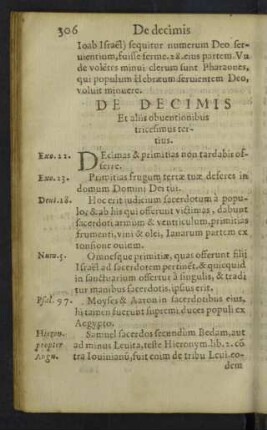 306 De decimis
Ioab Israel) sequitur numerum Deo ser-
uientium, fuisse ferme. 28. eius partem. Vn
de volētes minui clerum sunt Pharaones,
qui populum Hebræum seruientem Deo,
voluit minuere.
DE DECIMIS
Et aliis obuentionibus
tricesimus ter-
tius.
Exo. 22. DEcimas & primitias non tardabis of-
ferre.
Exo. 23. Primitias frugum terræ tuæ, deferes in
domum Domini Dei tui.
Deut. 18. Hoc erit iudicium sacerdotum à popu-
lo, & ab his qui offerunt victimas, dabunt
sacerdoti armum & ventriculum, primitias
frumenti, vini & olei, lanarum partem ex
tonsione ouium.
Num. 5. Omnesque primitiæ, quas offerunt filij
Israel ad sacerdotem pertinēt, & quicquid
in sanctuarium offertur à singulis, & tradi
tur manibus sacerdotis, ipsius erit.
Psal. 97. Moyses & Aaron in sacerdotibus eius,
hi tamen fuerunt supremi duces populi ex
Aegypto.
Hieron. Samuel sacerdos secundùm Bedam, aut
propter ad minus Leuita, teste Hieronym. lib. 2. cō
Augu. tra Iouinianū, fuit enim de tribu Leui. eo-
dem